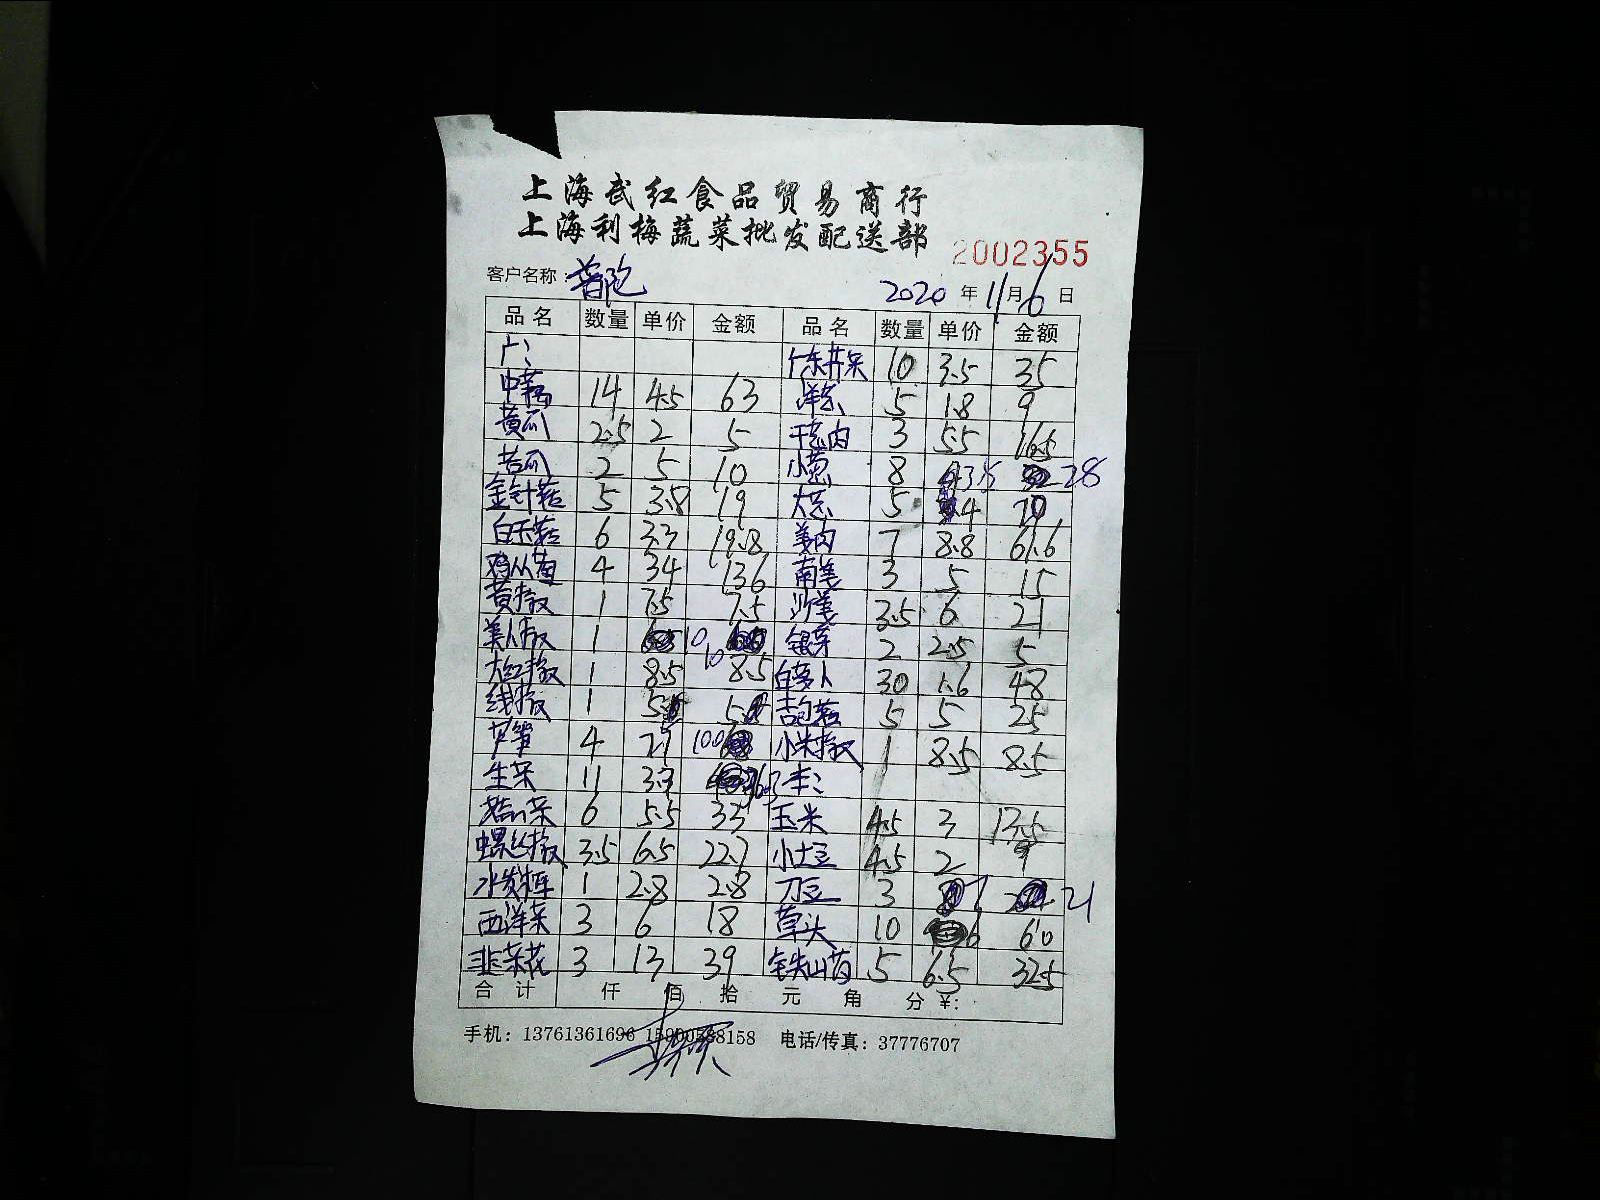 上海武红食品贸易商行
上海利梅蔬菜批发配送部
2002355
客户名称：普陀 2020年11月6日
品名 数量 单价 金额 品名 数量 单价 金额
广: 广东芥菜 10 3.5 35
中藕 14 4.5 63 洋葱 5 1.8 9
黄瓜 2.5 2 5 干葱肉 3 5.5 16.5
苦瓜 2 5 10 小葱 8 3.5 28
金针菇 5 3.8 19 大葱 5 4 20
白玉菇 6 3.3 19.8 姜肉 7 8.8 61.6
鸡从菌 4 34 136 南姜 3 5 15
黄椒 1 7.5 7.5 沙姜 3.5 6 21
美人椒 1 10 10 银芽 2 2.5 5
大红椒 1 8.5 8.5 白萝卜 30 1.6 48
线椒 1 5 5 杏鲍菇 5 5 25
芦笋 4 小米椒 1 8.5 8.5
生菜 11 3.3 36.3 本:
6 5.5 33 玉米 4.5 3 13.5
螺丝椒 3.5 6.5 22.7 小土豆 4.5 2 9
水发 1 2.8 2.8 刀豆 3 7 21
西洋菜 3 6 18 草头 10 6 60
韭菜花 3 13 39 铁山药 5 6.5 32.5
合计 仟 佰 拾 元 角 分 ¥:
手机：13761361696 15900588158 电话/传真：37776707